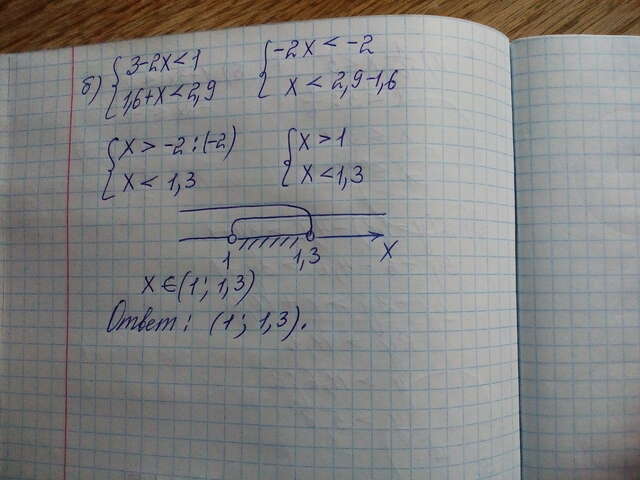 б) { 3-2x<1    { -2x < -2
{ 1,6+x<2,9    { x < 2,9-1,6
{ x > -2:(-2)    { x > 1
{ x < 1,3    { x < 1,3
1    1,3    x
x ∈ (1; 1,3)
Ответ: (1; 1,3).